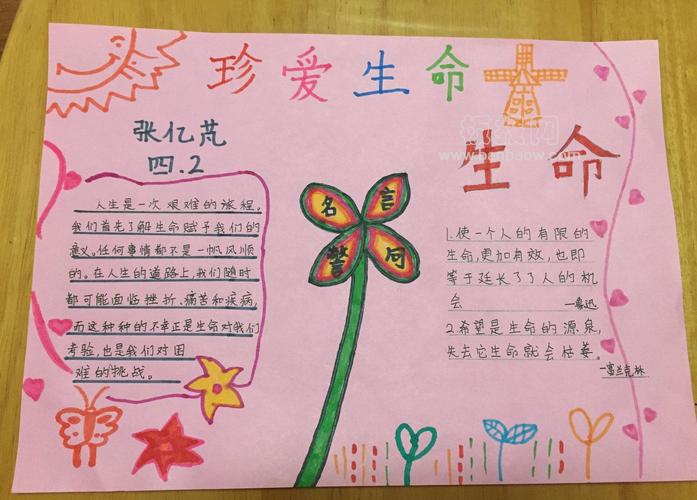 珍爱生命
张亿芃
四.2
生命
人生是一次艰难的旅程。
我们首先了解生命赋予我们的
意义。任何事情都不是一帆风顺
的。在人生的道路上,我们随时
都可能面临挫折、痛苦和疾病,
而这种种的不幸正是生命对我们
考验,也是我们对困
难的挑战。
名言
警句
1.使一个人的有限的
生命,更加有效,也即
等于延长了了人的机
会
—鲁迅
2.希望是生命的源泉,
失去它生命就会枯萎。
—富兰克林
纸报网
www.banbaow.com